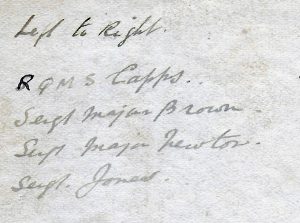 Left to Right.
R Q M S Capps.
Sergt Major Brown.
Sergt Major Newton.
Sergt. Jones.